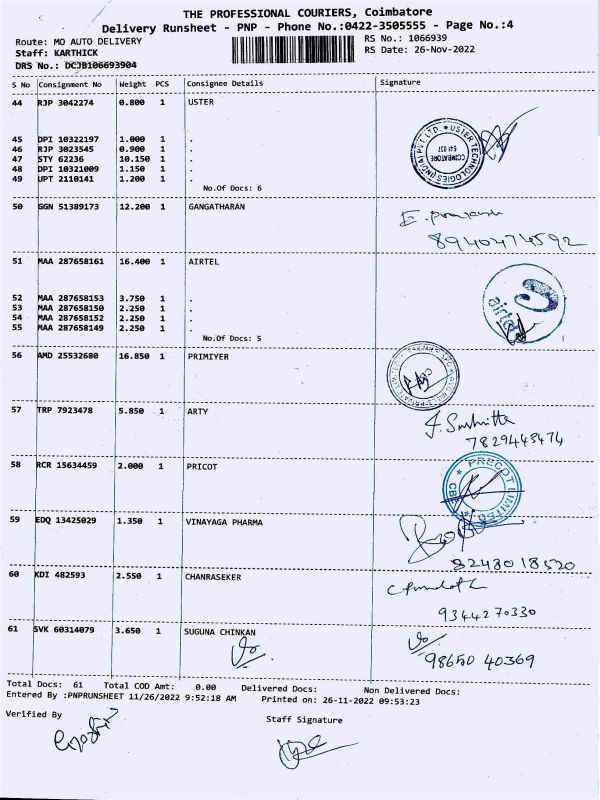 THE PROFESSIONAL COURIERS, Coimbatore
Delivery Runsheet - PNP - Phone No.:0422-3505555 - Page No.:4
Route: MO AUTO DELIVERY
RS No.: 1066939
Staff: KARTHICK
RS Date: 26-Nov-2022
DRS No.: DCJB106693904
S No Consignment No Weight PCS Consignee Details Signature
44 RJP 3042274 0.800 1 USTER
45 DPI 10322197 1.000 1 .
46 RJP 3023545 0.900 1 .
47 STY 62236 10.150 1 .
48 DPI 10321009 1.150 1 .
49 UPT 2110141 1.200 1 .
No.Of Docs: 6
USTER TECHNOLOGIES (INDIA) PVT LTD.
COIMBATORE
641 021
50 GGN 51389173 12.200 1 GANGATHARAN
8940474592
51 MAA 287658161 16.400 1 AIRTEL
52 MAA 287658153 3.750 1 .
53 MAA 287658150 2.250 1 .
54 MAA 287658152 2.250 1 .
55 MAA 287658149 2.250 1 .
No.Of Docs: 5
airtel
56 AMD 25532680 16.850 1 PRIMIYER
57 TRP 7923478 5.850 1 ARTY
7829448474
58 RCR 15634459 2.000 1 PRICOT
PRECOT LIMITED
CBE
59 EDQ 13425029 1.350 1 VINAYAGA PHARMA
8248018520
60 KDI 482593 2.550 1 CHANRASEKER
9344270330
61 SVK 60314079 3.650 1 SUGUNA CHINKAN
98650 40369
Total Docs: 61 Total COD Amt: 0.00 Delivered Docs: Non Delivered Docs:
Entered By :PNPRUNSHEET 11/26/2022 9:52:18 AM Printed on: 26-11-2022 09:53:23
Verified By
Staff Signature